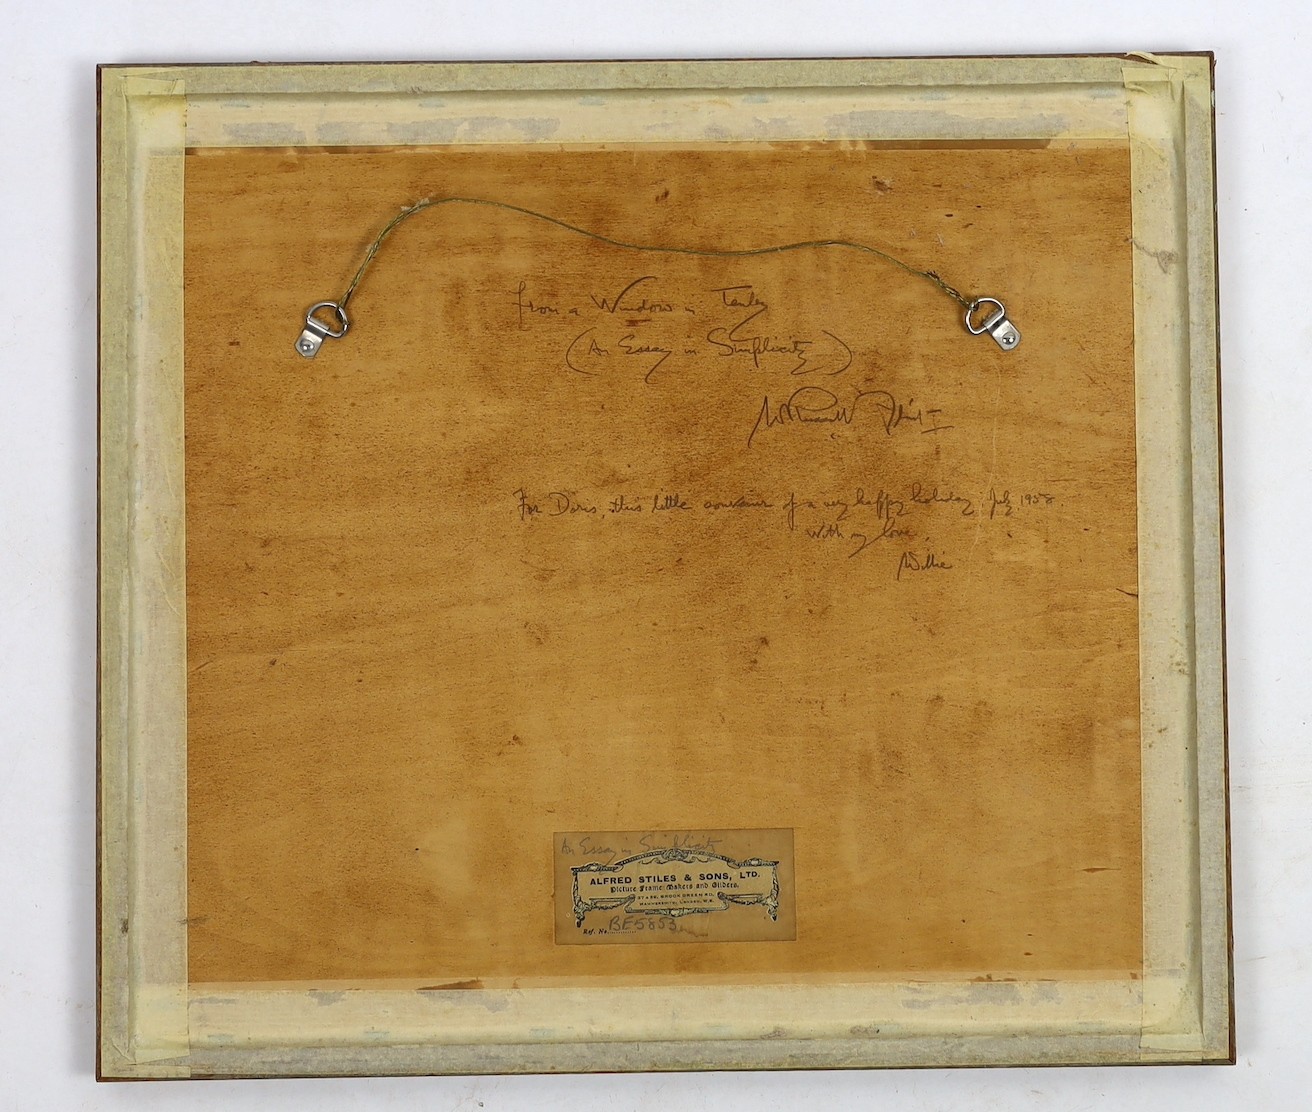 From a Window in Tenby
(An Essay in Simplicity)
W Russell Flint
For Doris, this little souvenir of a very happy holiday, July 1958.
With my love,
Willie
An Essay in Simplicity
ALFRED STILES & SONS, LTD.
Picture Frame Makers and Gilders.
HAMMERSMITH, LONDON, W.6.
Ref. No. BE5853